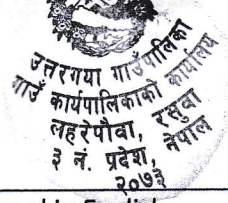 उत्तरगया गाउँपालिका
गाउँ कार्यपालिकाको कार्यालय
लहरेपौवा, रसुवा
३ नं. प्रदेश, नेपाल
२०७३